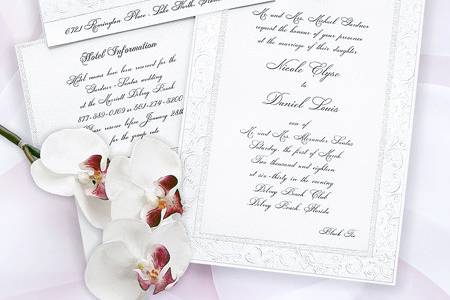 6721 Remington Place - Lake Worth,
Hotel Information
Hotel rooms have been reserved for the
Gardner - Santes wedding
at the Marriott Delray Beach
877-389-0169 or 561-274-3200
Please reserve before January 28th
for the group rate
Mr. and Mrs. Michael Gardner
request the honour of your presence
at the marriage of their daughter
Nicole Elyse
to
Daniel Louis
son of
Mr. and Mrs. Alexander Santes
Saturday, the first of March
Two thousand and eighteen
at six-thirty in the evening
Delray Beach Club
Delray Beach, Florida
Black Tie